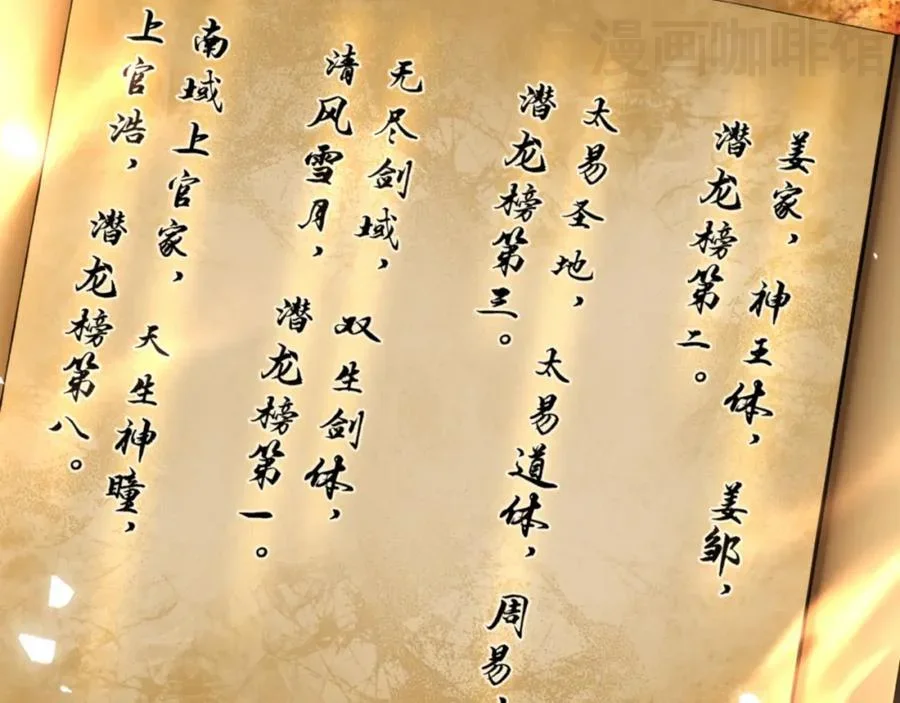 姜家，神王体，姜邹，
潜龙榜第二。
太易圣地，太易道体，周易，
潜龙榜第三。
无尽剑域，双生剑体，
清风雪月，潜龙榜第一。
南域上官家，天生神瞳，
上官浩，潜龙榜第八。
漫画咖啡馆